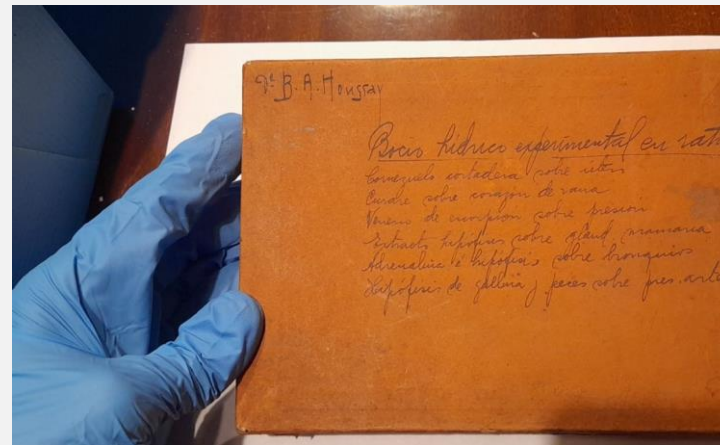 Dr. B. A. Houssay
Bocio hídrico experimental en rat
Cornezuelo cortadera sobre útero
Curare sobre corazon de rana
Veneno de escorpion sobre presion
Extracto hipófisis sobre gland mamaria
Adrenalina é hipófisis sobre bronquios
Hipófisis de gallina y peces sobre pres. arte